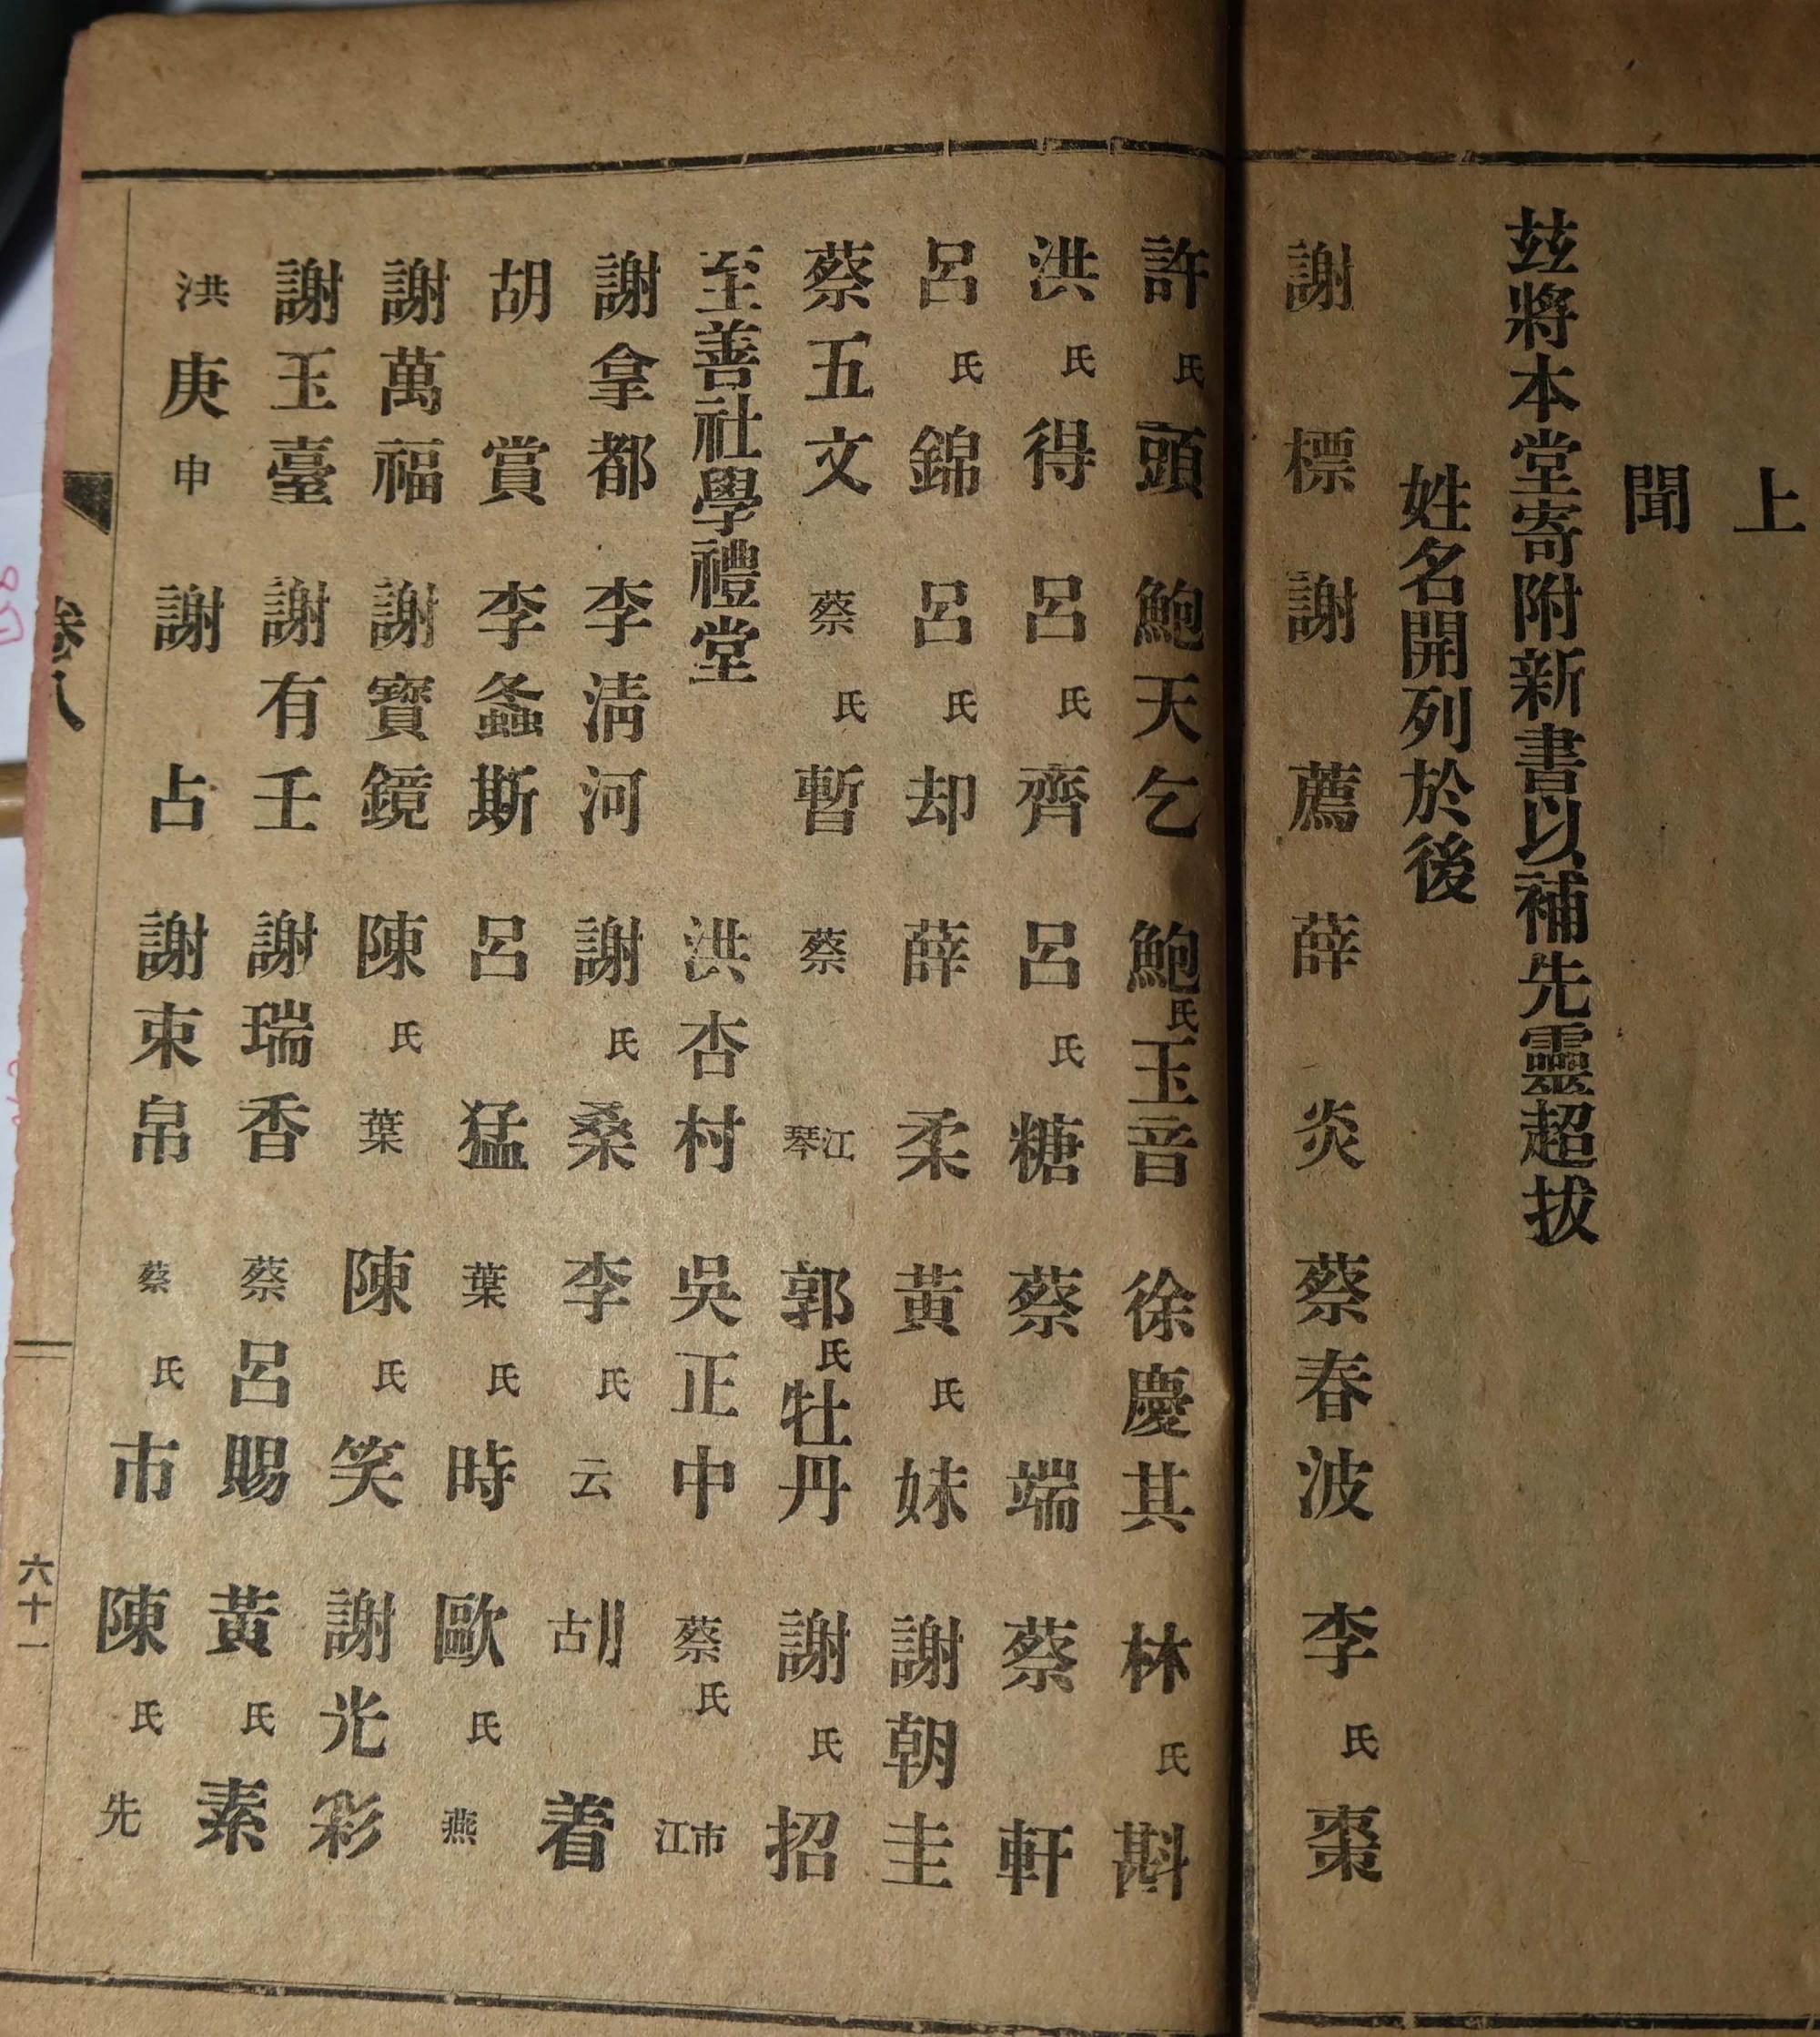 上
聞
玆將本堂寄附新書以補先靈超拔
姓名開列於後
謝標 謝薦 薛炎 蔡春波 李氏棗
許氏頭 鮑天乞 鮑氏玉音 徐慶其 林氏斟
洪氏得 呂氏齊 呂氏糖 蔡端 蔡軒
呂氏錦 呂氏却 薛柔 黃氏妹 謝朝圭
蔡五文 蔡氏暫 蔡江琴 郭氏牡丹 謝氏招
至善社學禮堂 洪杏村 吳正中 蔡氏市江
謝拿都 李清河 謝氏桑 李氏云 胡着
胡賞 李螽斯 呂猛 葉氏時 歐氏燕
謝萬福 謝寶鏡 陳氏葉 陳氏笑 謝光彩
謝玉臺 謝有壬 謝瑞香 蔡呂賜 黃氏素
洪庚申 謝占 謝束帛 蔡氏市 陳氏先
卷八 六十一